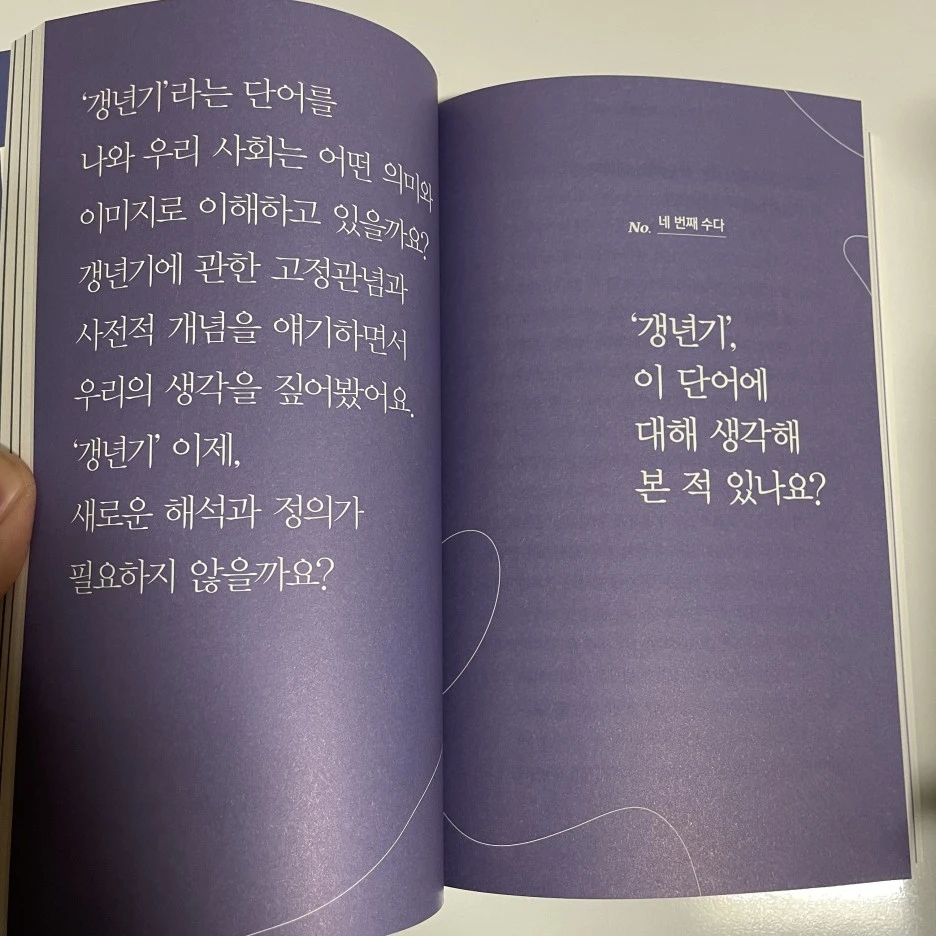 ‘갱년기’라는 단어를
나와 우리 사회는 어떤 의미와
이미지로 이해하고 있을까요?
갱년기에 관한 고정관념과
사전적 개념을 얘기하면서
우리의 생각을 짚어봤어요.
‘갱년기’ 이제,
새로운 해석과 정의가
필요하지 않을까요?
No. 네 번째 수다
‘갱년기’,
이 단어에
대해 생각해
본 적 있나요?